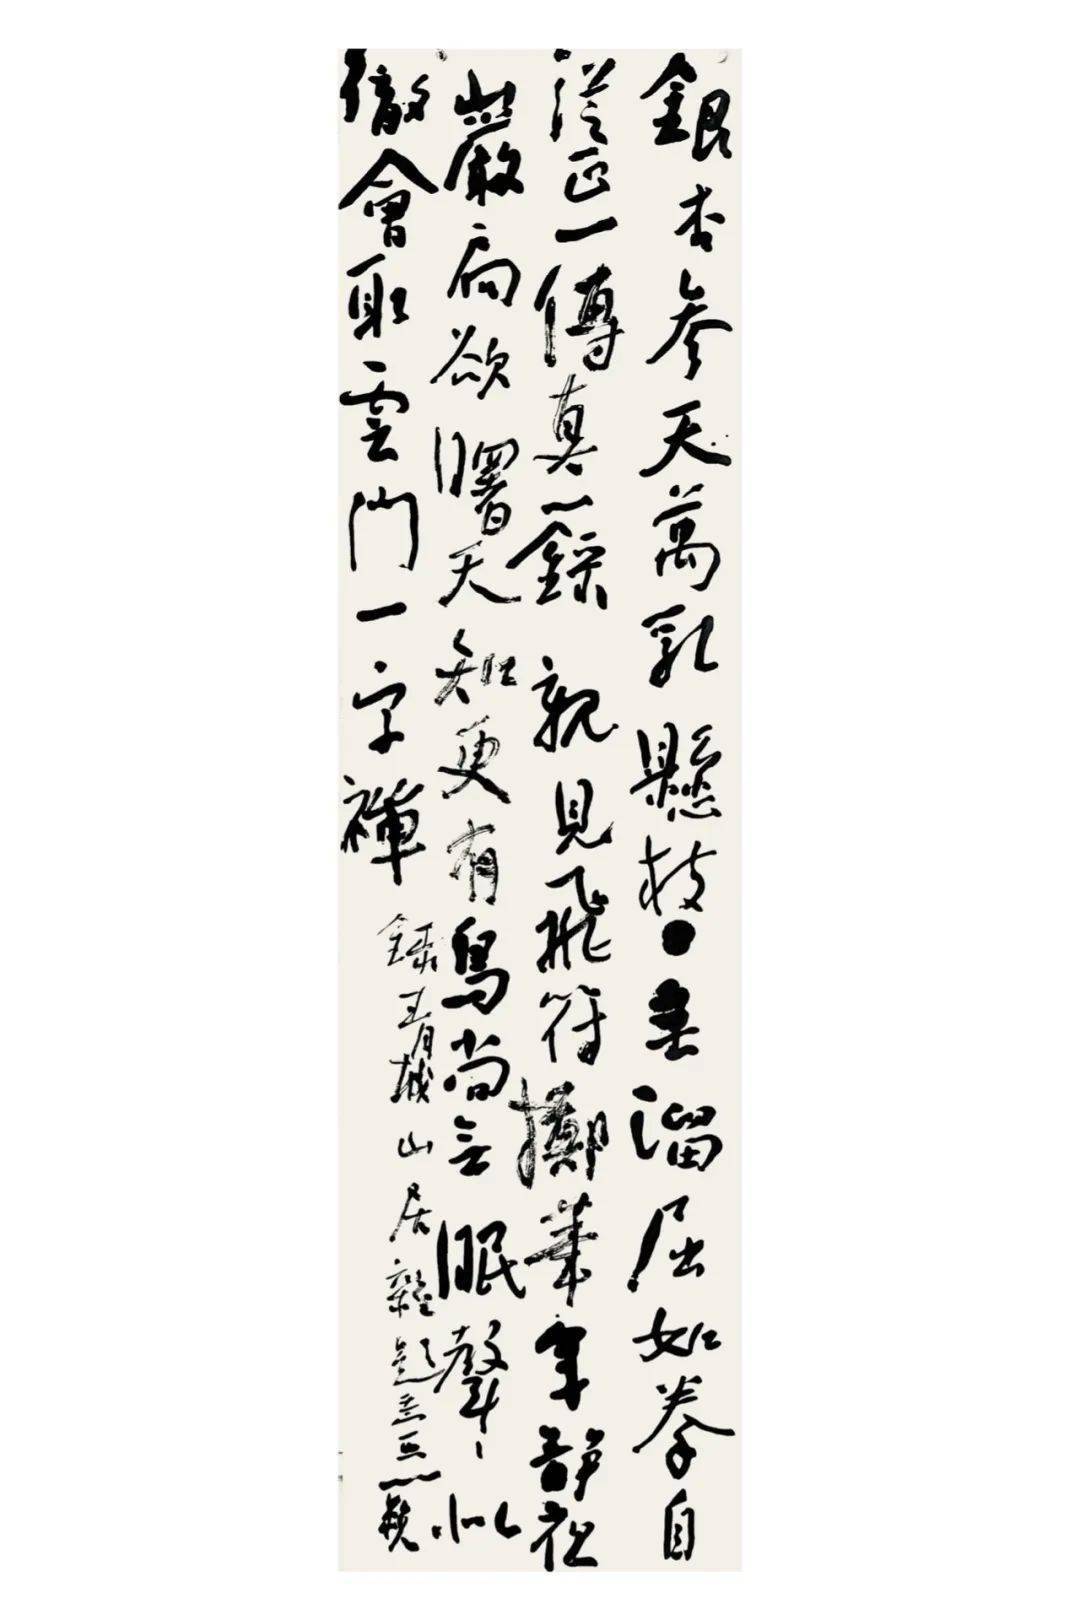 銀杏參天萬乳懸枝垂溜屈如拳自
從正一傳真錄親見飛符擲筆年靜
巖扃欲曙天知更有鳥尚無眠聲聲似
徹會取雲門一字禪
錄青城山居雜題